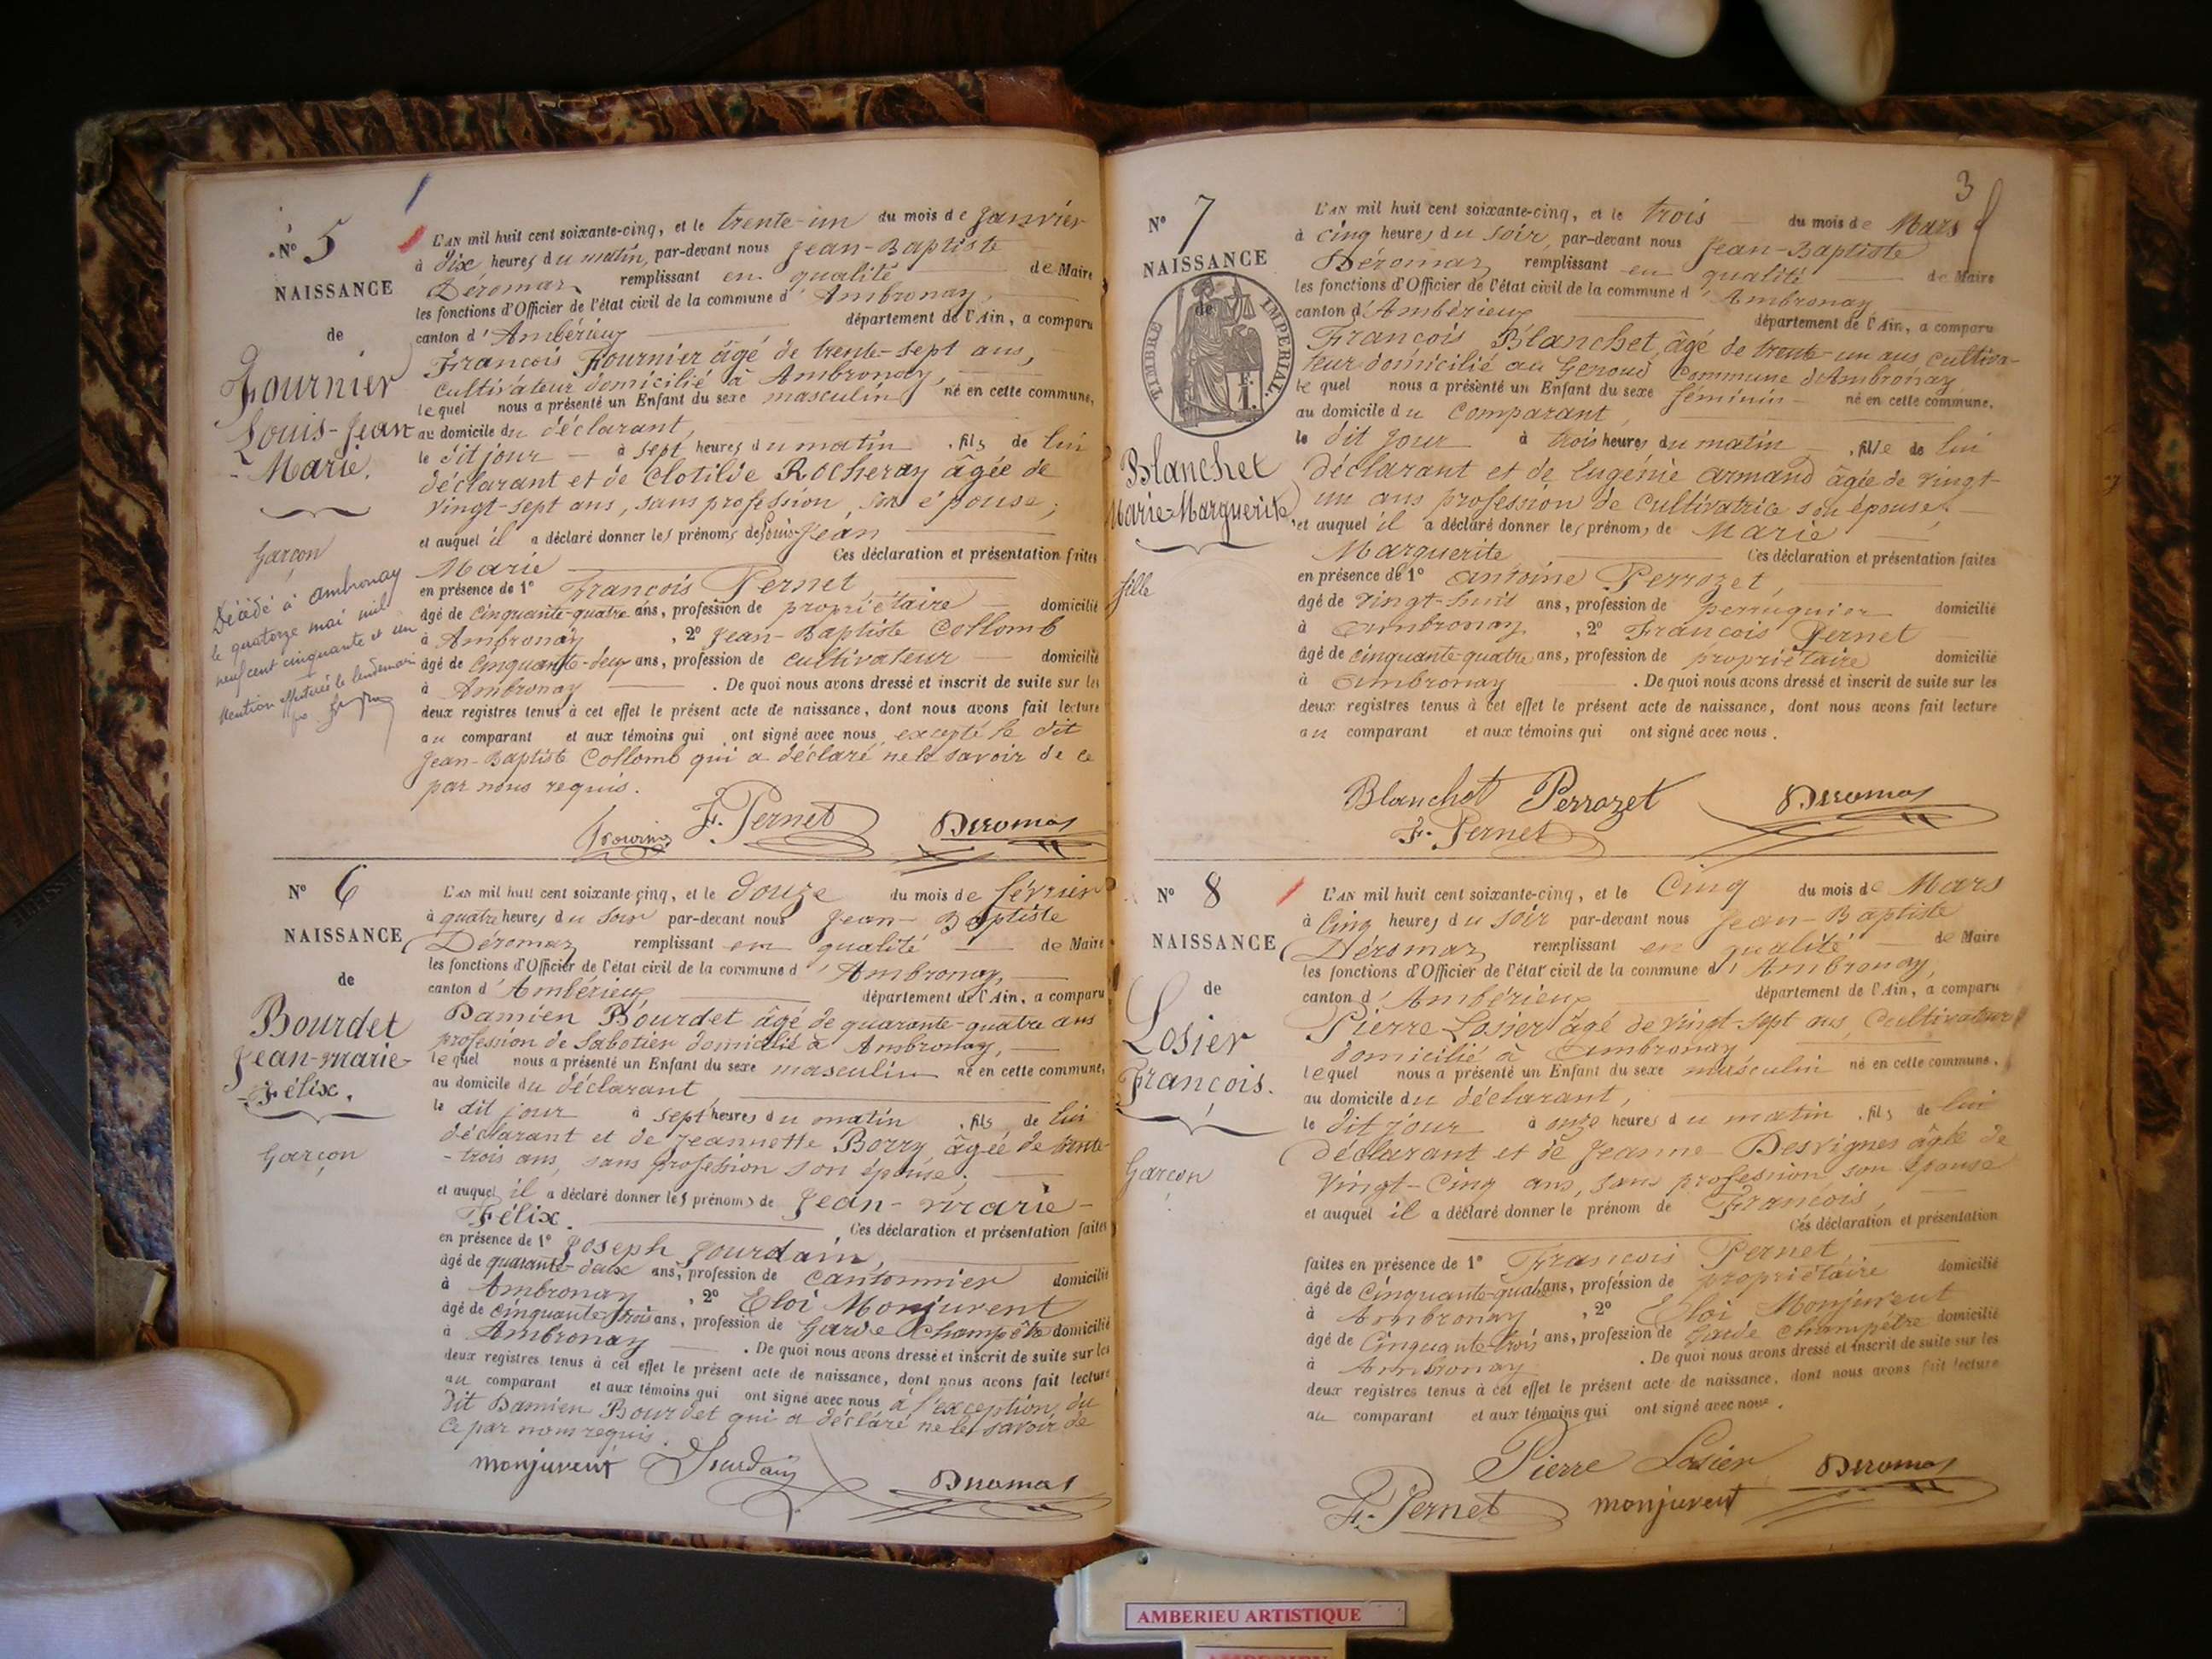 N° 5
NAISSANCE
de
Fournier
Louis-Jean
-Marie.
Garçon
Décédé à Ambronay
le quatorze mai mil
neuf cent cinquante et un
Mention effectuée le lendemain
L'AN mil huit cent soixante-cinq, et le trente-un du mois de Janvier
à dix heures du matin, par-devant nous Jean-Baptiste
Déromas remplissant en qualité de Maire
les fonctions d'Officier de l'état civil de la commune d'Ambronay,
canton d'Ambérieux département de l'Ain, a comparu
François Fournier âgé de trente-sept ans,
cultivateur domicilié à Ambronay,
lequel nous a présenté un Enfant du sexe masculin né en cette commune,
au domicile du déclarant,
le dit jour à sept heures du matin, fils de lui
déclarant et de Clotilde Rocheray âgée de
vingt-sept ans, sans profession, son épouse;
et auquel il a déclaré donner les prénoms de Louis-Jean
Marie Ces déclaration et présentation faites
en présence de 1° François Pernet,
âgé de cinquante-quatre ans, profession de propriétaire domicilié
à Ambronay, 2° Jean-Baptiste Collomb
âgé de cinquante-deux ans, profession de cultivateur domicilié
à Ambronay. De quoi nous avons dressé et inscrit de suite sur les
deux registres tenus à cet effet le présent acte de naissance, dont nous avons fait lecture
au comparant et aux témoins qui ont signé avec nous excepté le dit
Jean-Baptiste Collomb qui a déclaré ne le savoir de ce
par nous requis.
F. Pernet Deromas
N° 6
NAISSANCE
de
Bourdet
Jean-Marie-
-Félix.
Garçon
L'AN mil huit cent soixante-cinq, et le douze du mois de février
à quatre heures du soir par-devant nous Jean-Baptiste
Déromas remplissant en qualité de Maire
les fonctions d'Officier de l'état civil de la commune d'Ambronay,
canton d'Ambérieux département de l'Ain, a comparu
Damien Bourdet âgé de quarante-quatre ans
profession de Sabotier domicilié à Ambronay,
lequel nous a présenté un Enfant du sexe masculin né en cette commune,
au domicile du déclarant
le dit jour à sept heures du matin, fils de lui
déclarant et de Jeannette Borry âgée de trente
-trois ans, sans profession son épouse;
et auquel il a déclaré donner les prénoms de Jean-Marie-
Félix. Ces déclaration et présentation faites
en présence de 1° Joseph Jourdain,
âgé de quarante-deux ans, profession de cantonnier domicilié
à Ambronay, 2° Eloi Monjuvent
âgé de cinquante-trois ans, profession de Garde Champêtre domicilié
à Ambronay. De quoi nous avons dressé et inscrit de suite sur les
deux registres tenus à cet effet le présent acte de naissance, dont nous avons fait lecture
au comparant et aux témoins qui ont signé avec nous à l'exception du
dit Damien Bourdet qui a déclaré ne le savoir de
ce par nous requis.
monjuvent Jourdain Deromas
3
N° 7
NAISSANCE
de
TIMBRE IMPERIAL.
Blanchet
Marie-Marguerite
fille
L'AN mil huit cent soixante-cinq, et le trois du mois de Mars
à cinq heures du soir, par-devant nous Jean-Baptiste
Déromas remplissant en qualité de Maire
les fonctions d'Officier de l'état civil de la commune d'Ambronay
canton d'Ambérieux département de l'Ain, a comparu
François Blanchet, âgé de trente-un ans cultiva-
teur domicilié au Genoud Commune d'Ambronay
lequel nous a présenté un Enfant du sexe féminin né en cette commune,
au domicile du comparant,
le dit jour à trois heures du matin, fille de lui
déclarant et de Eugénie Armand âgée de vingt-
un ans profession de Cultivatrice son épouse;
et auquel il a déclaré donner les prénoms de Marie
Marguerite Ces déclaration et présentation faites
en présence de 1° Antoine Perrozet,
âgé de vingt-huit ans, profession de perruquier domicilié
à Ambronay, 2° François Pernet
âgé de cinquante quatre ans, profession de propriétaire domicilié
à Ambronay. De quoi nous avons dressé et inscrit de suite sur les
deux registres tenus à cet effet le présent acte de naissance, dont nous avons fait lecture
au comparant et aux témoins qui ont signé avec nous.
Blanchet Perrozet Deromas
F. Pernet
N° 8
NAISSANCE
de
Losier
François.
Garçon
L'AN mil huit cent soixante-cinq, et le Cinq du mois de Mars
à Cinq heures du soir par-devant nous Jean-Baptiste
Déromas remplissant en qualité de Maire
les fonctions d'Officier de l'état civil de la commune d'Ambronay,
canton d'Ambérieux département de l'Ain, a comparu
Pierre Losier âgé de vingt-sept ans, Cultivateur
domicilié à Ambronay
lequel nous a présenté un Enfant du sexe masculin né en cette commune,
au domicile du déclarant,
le dit jour à onze heures du matin, fils de lui
déclarant et de Jeanne Desvignes âgée de
vingt-Cinq ans, sans profession son épouse
et auquel il a déclaré donner le prénom de François,
Ces déclaration et présentation
faites en présence de 1° François Pernet
âgé de Cinquante-quatre ans, profession de propriétaire domicilié
à Ambronay, 2° Eloi Monjuvent
âgé de Cinquante trois ans, profession de Garde Champêtre domicilié
à Ambronay. De quoi nous avons dressé et inscrit de suite sur les
deux registres tenus à cet effet le présent acte de naissance, dont nous avons fait lecture
au comparant et aux témoins qui ont signé avec nous.
Pierre Losier Deromas
F. Pernet monjuvent
AMBERIEU ARTISTIQUE